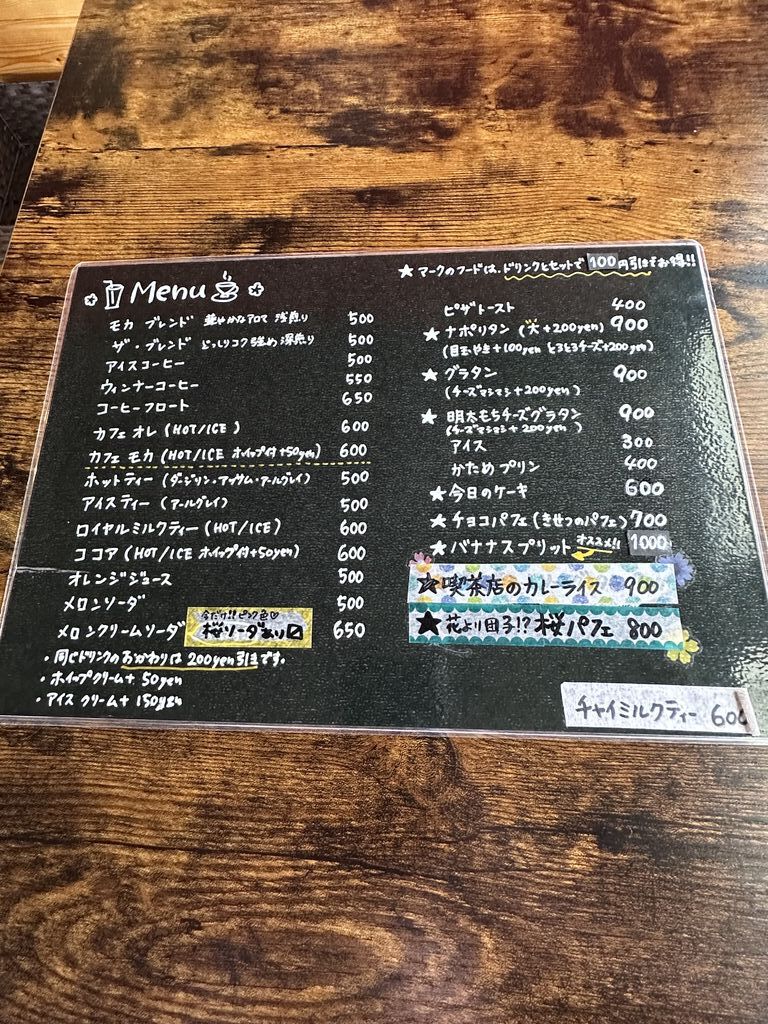 Menu
モカ ブレンド 華やかなアロマ 浅煎り 500
ザ・ブレンド どっしりコク強め 深煎り 500
アイスコーヒー 500
ウィンナーコーヒー 550
コーヒーフロート 650
カフェ オレ (HOT/ICE) 600
カフェ モカ (HOT/ICE ホイップ付+50yen) 600
ホットティー (ダージリン・アッサム・アールグレイ) 500
アイスティー (アールグレイ) 500
ロイヤルミルクティー (HOT/ICE) 600
ココア (HOT/ICE ホイップ付+50yen) 600
オレンジジュース 500
メロンソーダ 500
今だけ!! ピンク色♡
メロンクリームソーダ 桜ソーダあり☑ 650
・同じドリンクのおかわりは200yen引きです。
・ホイップクリーム+50yen
・アイスクリーム+150yen
★マークのフードは、ドリンクとセットで100円引きでお得!!
ピザトースト 400
★ナポリタン (大+200yen) 900
(目玉やき+100yen とろとろチーズ+200yen)
★グラタン 900
(チーズマシマシ+200yen)
★明太もちチーズグラタン 900
(チーズマシマシ+200yen)
アイス 300
かためプリン 400
★今日のケーキ 600
★チョコパフェ (きせつのパフェ) 700
★バナナスプリット オススメ!! 1000
★喫茶店のカレーライス 900
★花より団子!? 桜パフェ 800
チャイミルクティー 600